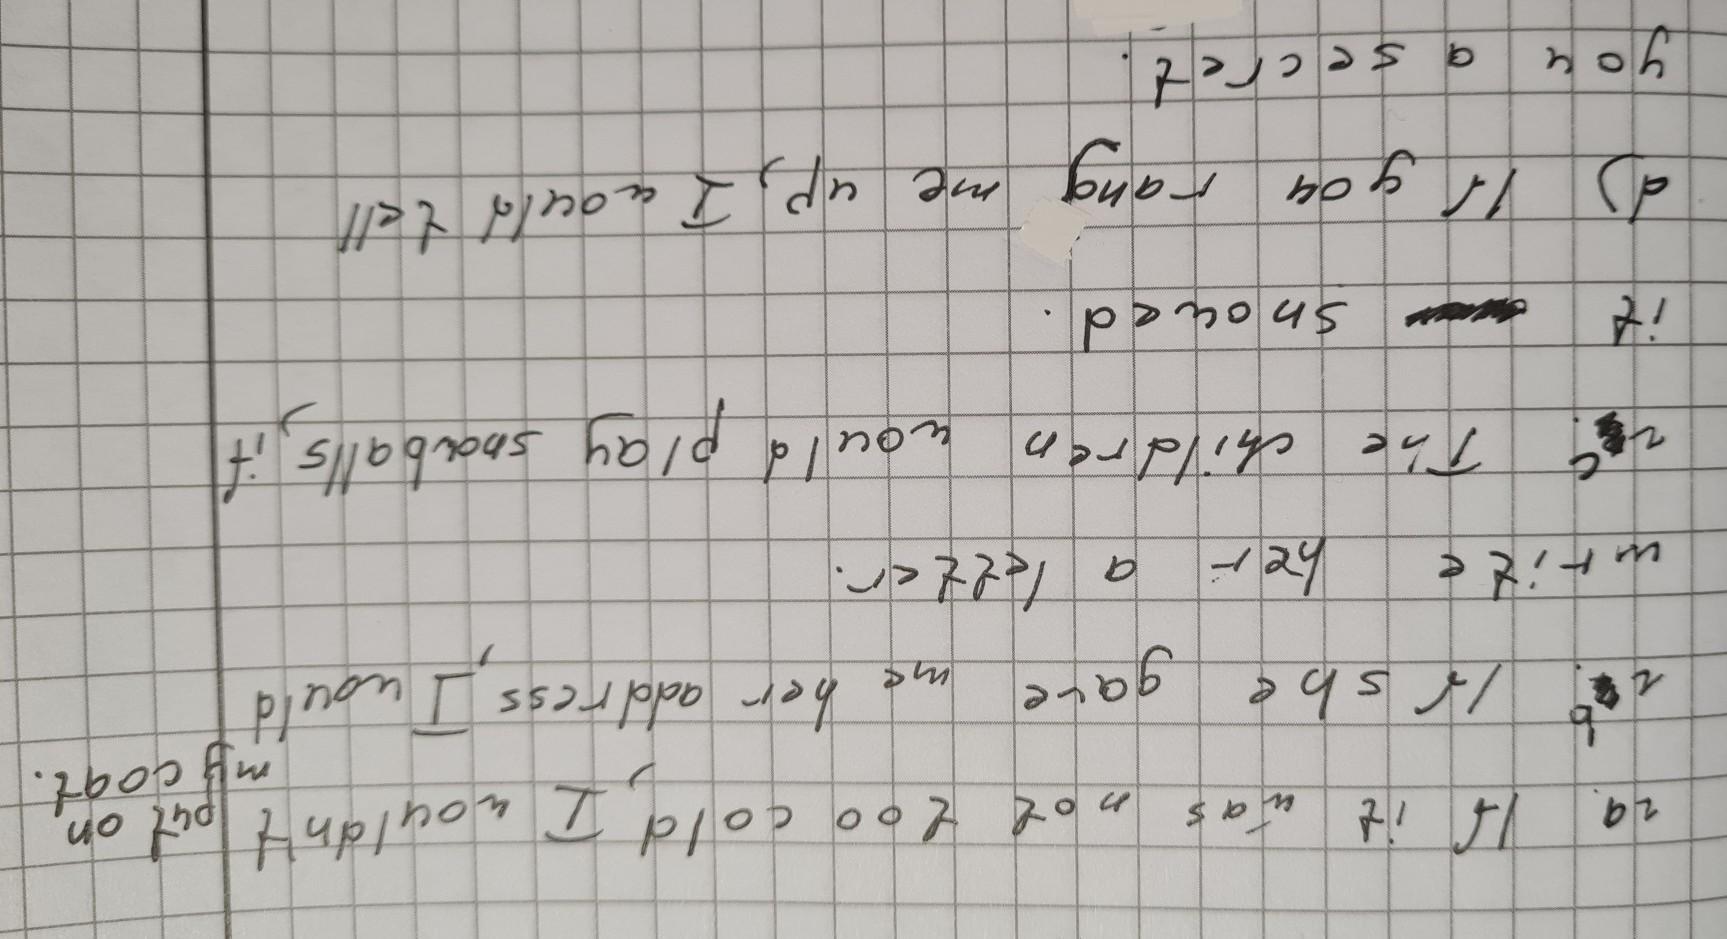 2a. If it was not too cold, I wouldnt put on my coat.
2b. If she gave me her address, I would
write her a letter.
2c. The children would play snowballs, if
it snowed.
d) If you rang me up, I would tell
you a secret.